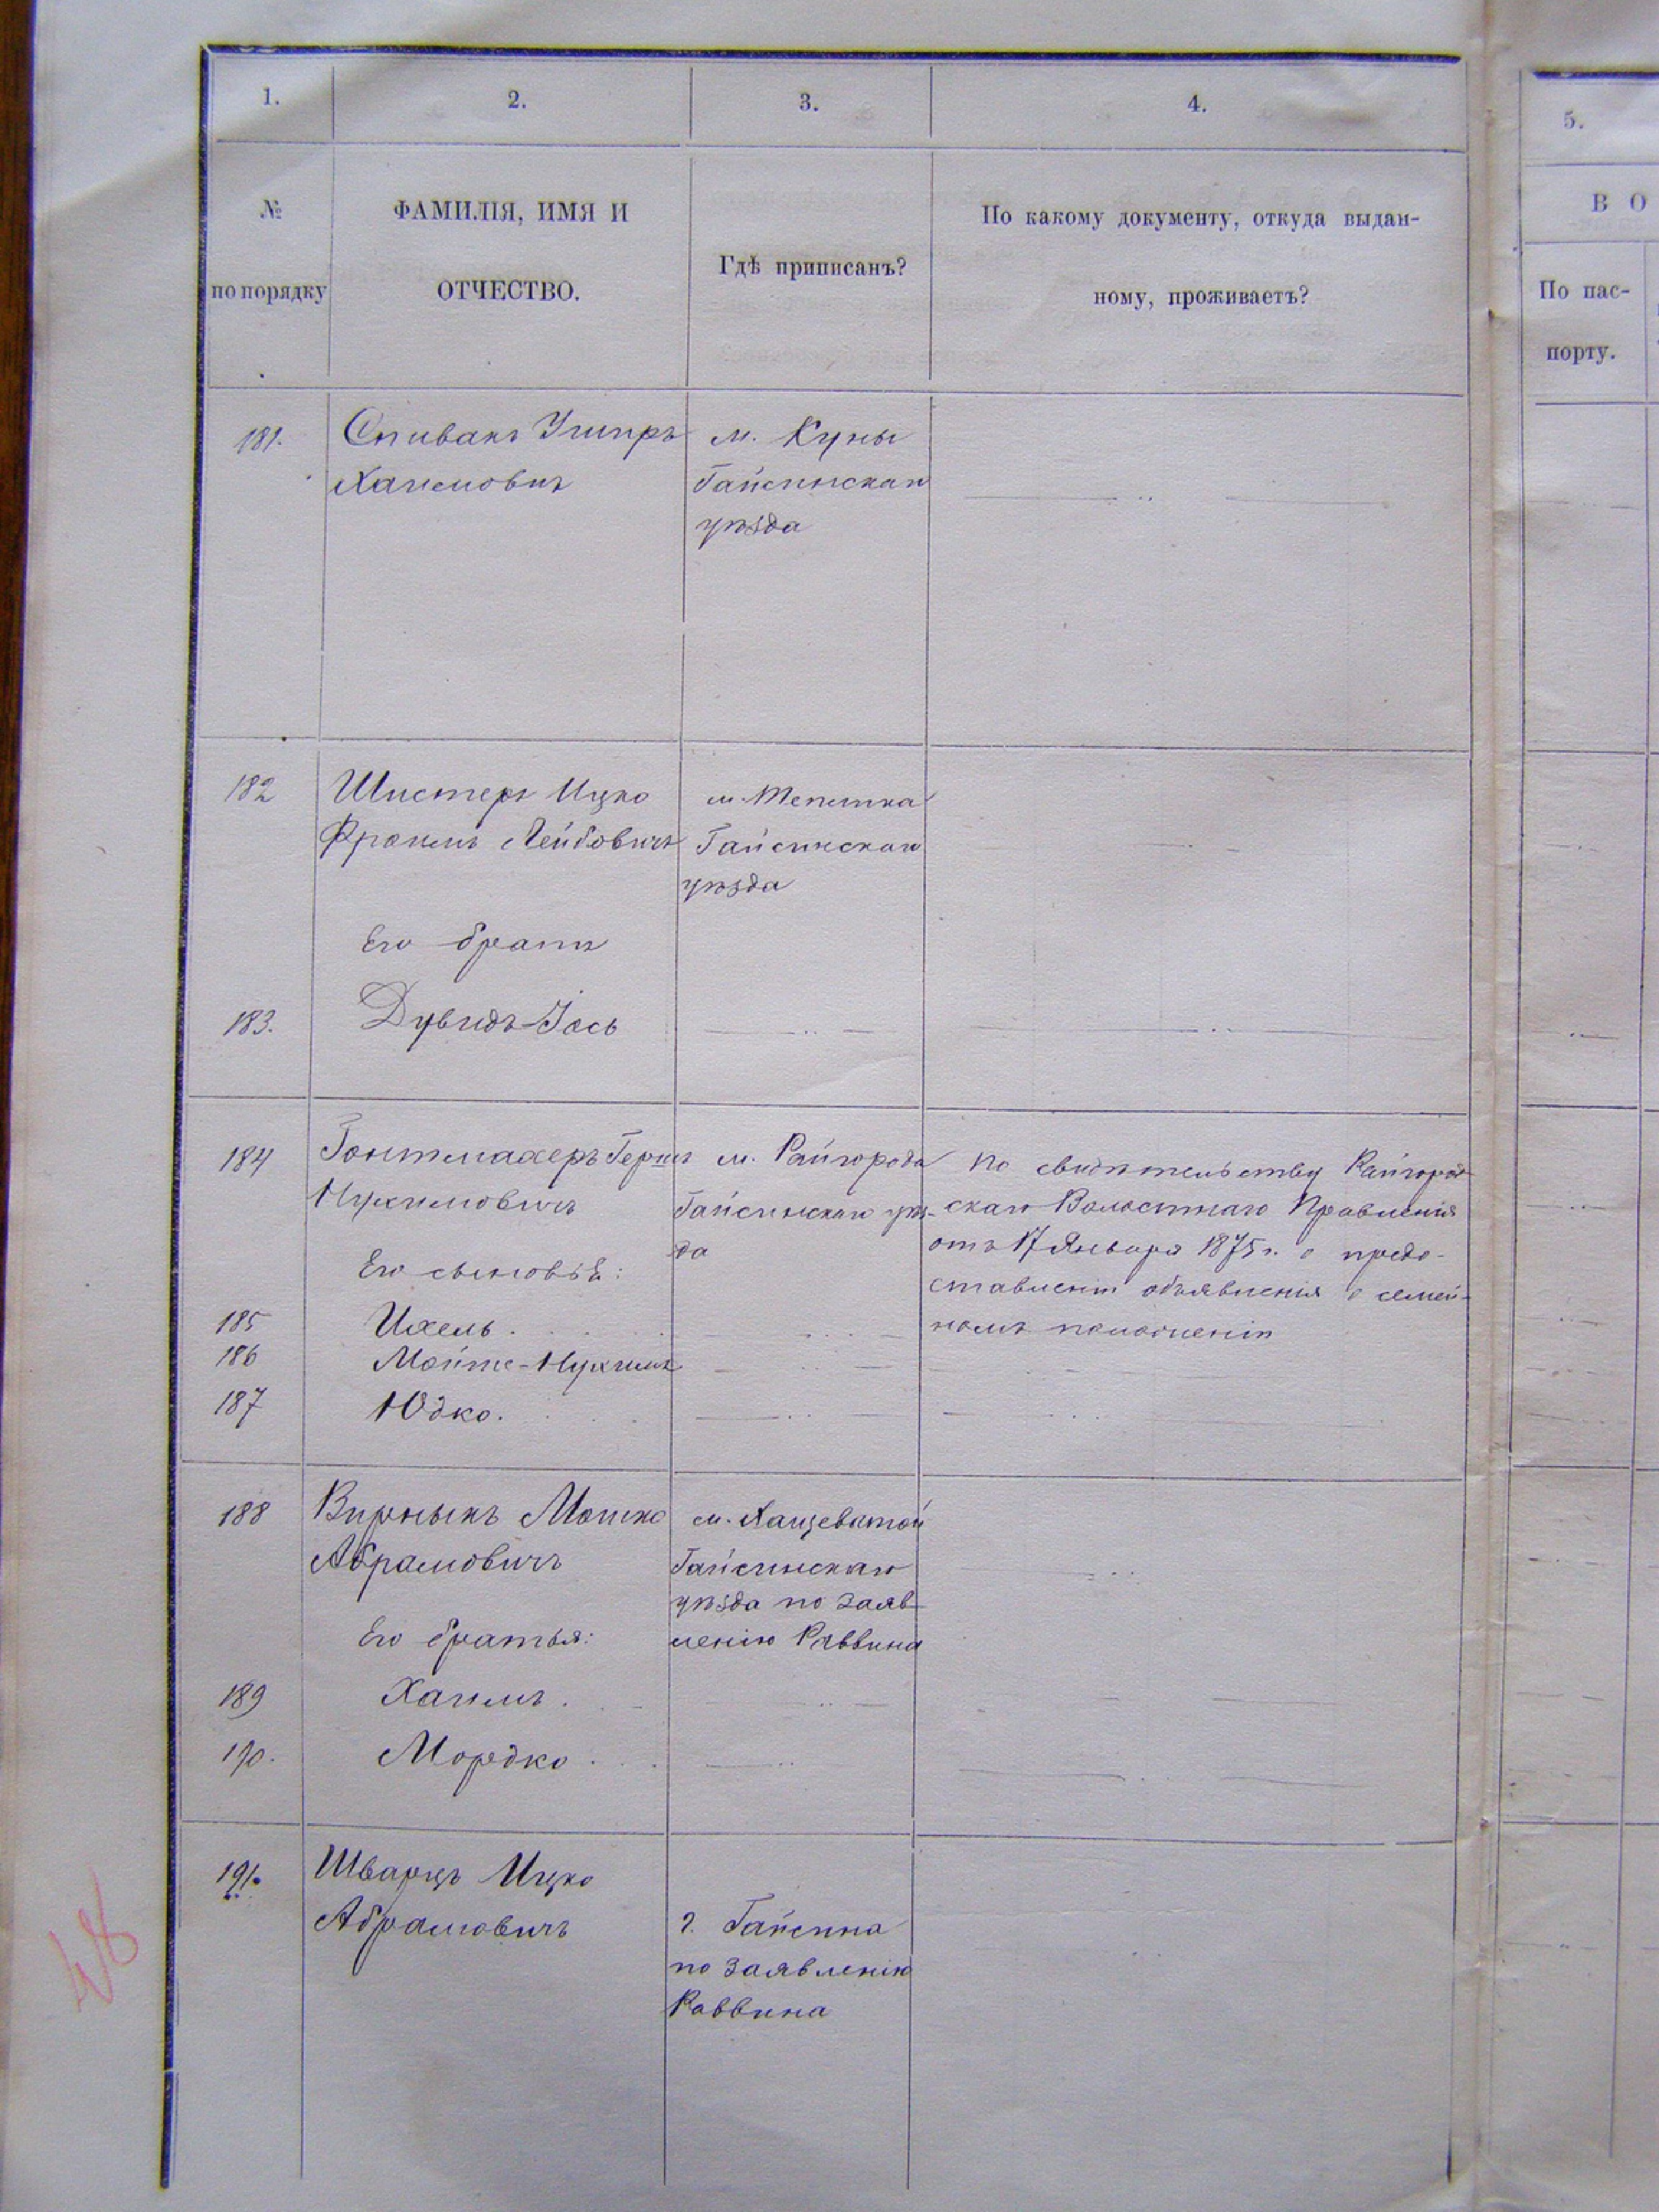 1.
2.
3.
4.
5.
№
по порядку
ФАМИЛІЯ, ИМЯ И
ОТЧЕСТВО.
Гдѣ приписанъ?
По какому документу, откуда выдан-
ному, проживаетъ?
В О
По пас-
порту.
181.
Спивакъ
м. Куны
Гайсинскаго
уѣзда
182
Шистеръ Ицко
Фроимъ Лейбовичъ
м. Теплика
Гайсинскаго
уѣзда
Его братъ
183.
Дувидъ-Іось
184
Гонтмахеръ Гершъ
Нухимовичъ
м. Райгорода
Гайсинскаго уѣз-
да
По свидѣтельству Райгород-
скаго Волостнаго Правленія
отъ 17 Января 1875 г. о предо-
ставленіи объявленія о семей-
номъ положеніи
Его сыновья:
185
Ихель.
186
Мойше-Нухимъ
187
Юдко.
188
Вирныкъ Мошко
Абрамовичъ
м. Хащеватой
Гайсинскаго
уѣзда по заяв-
ленію Раввина
Его братья:
189
Хаимъ.
190.
Мордко.
191.
Шварцъ Ицко
Абрамовичъ
г. Гайсина
по заявленію
Раввина
48